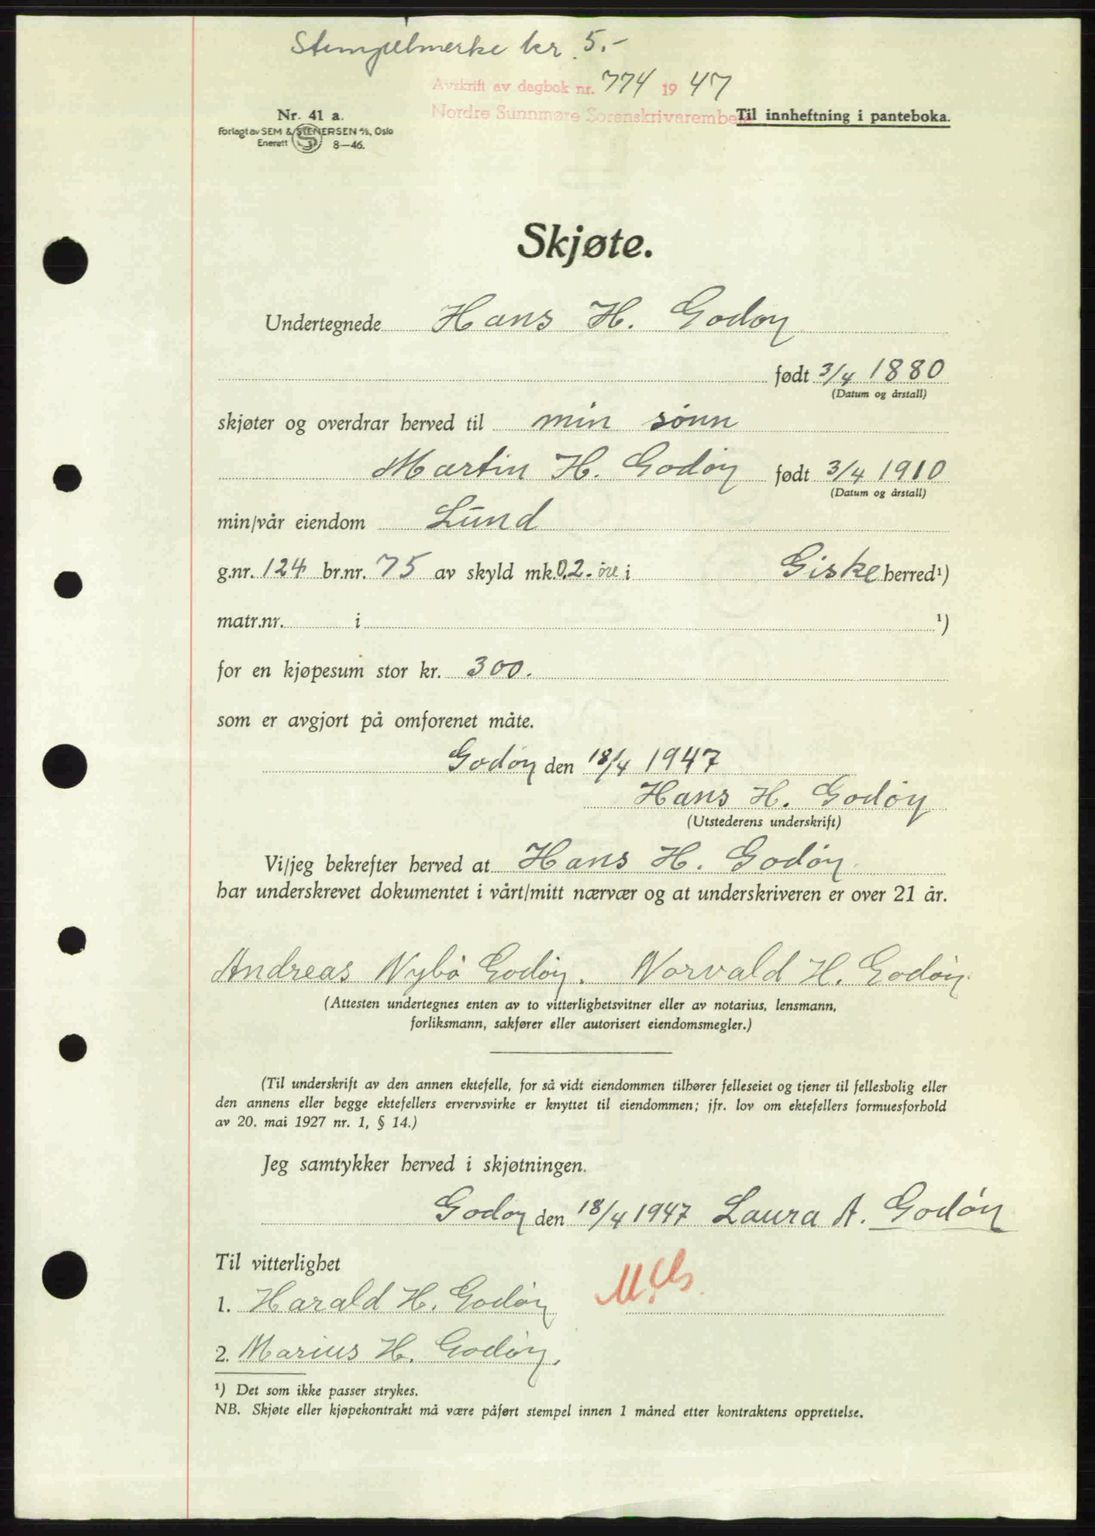 Stempelmerke kr. 5.-
Avskrift av dagbok nr. 774 1947
Nordre Sunnmøre Sorenskrivarembete
Til innheftning i panteboka.
Nr. 41 a.
Forlagt av SEM & STENERSEN A/S, Oslo
Enerett 8-46.
Skjøte.
Undertegnede Hans H. Godøy
født 3/4 1880
(Datum og årstall)
skjøter og overdrar herved til min sønn
Martin H. Godøy født 3/4 1910
(Datum og årstall)
min/vår eiendom Lund
g.nr. 124 br.nr. 75 av skyld mk. 0.2. øre i Giske herred¹)
matr.nr. i ¹)
for en kjøpesum stor kr. 300.
som er avgjort på omforenet måte.
Godøy den 18/4 1947
Hans H. Godøy
(Utstederens underskrift)
Vi/jeg bekrefter herved at Hans H. Godøy
har underskrevet dokumentet i vårt/mitt nærvær og at underskriveren er over 21 år.
Andreas Nybø Godøy. Norvald H. Godøy.
(Attesten undertegnes enten av to vitterlighetsvitner eller av notarius, lensmann,
forliksmann, sakfører eller autorisert eiendomsmegler.)
(Til underskrift av den annen ektefelle, for så vidt eiendommen tilhører felleseiet og tjener til fellesbolig eller
den annens eller begge ektefellers ervervsvirke er knyttet til eiendommen; jfr. lov om ektefellers formuesforhold
av 20. mai 1927 nr. 1, § 14.)
Jeg samtykker herved i skjøtningen.
Godøy den 18/4 1947 Laura A. Godøy
Til vitterlighet
1. Harald H. Godøy
2. Marius H. Godøy.
¹) Det som ikke passer strykes.
NB. Skjøte eller kjøpekontrakt må være påført stempel innen 1 måned etter kontraktens opprettelse.